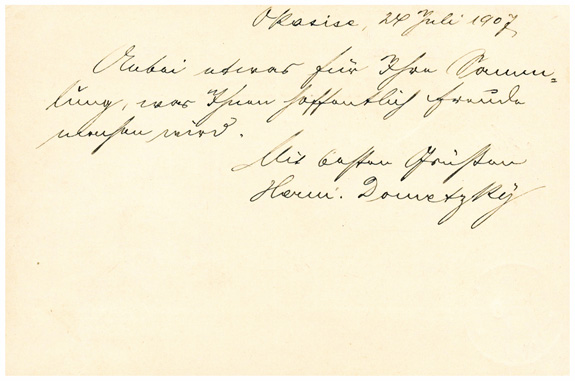 Okasise, 24 Juli 1907,
Anbei etwas für Ihre Samm=
lung, was Ihnen hoffentlich Freude
machen wird.
Mit besten Grüßen
Herm. Dometzky